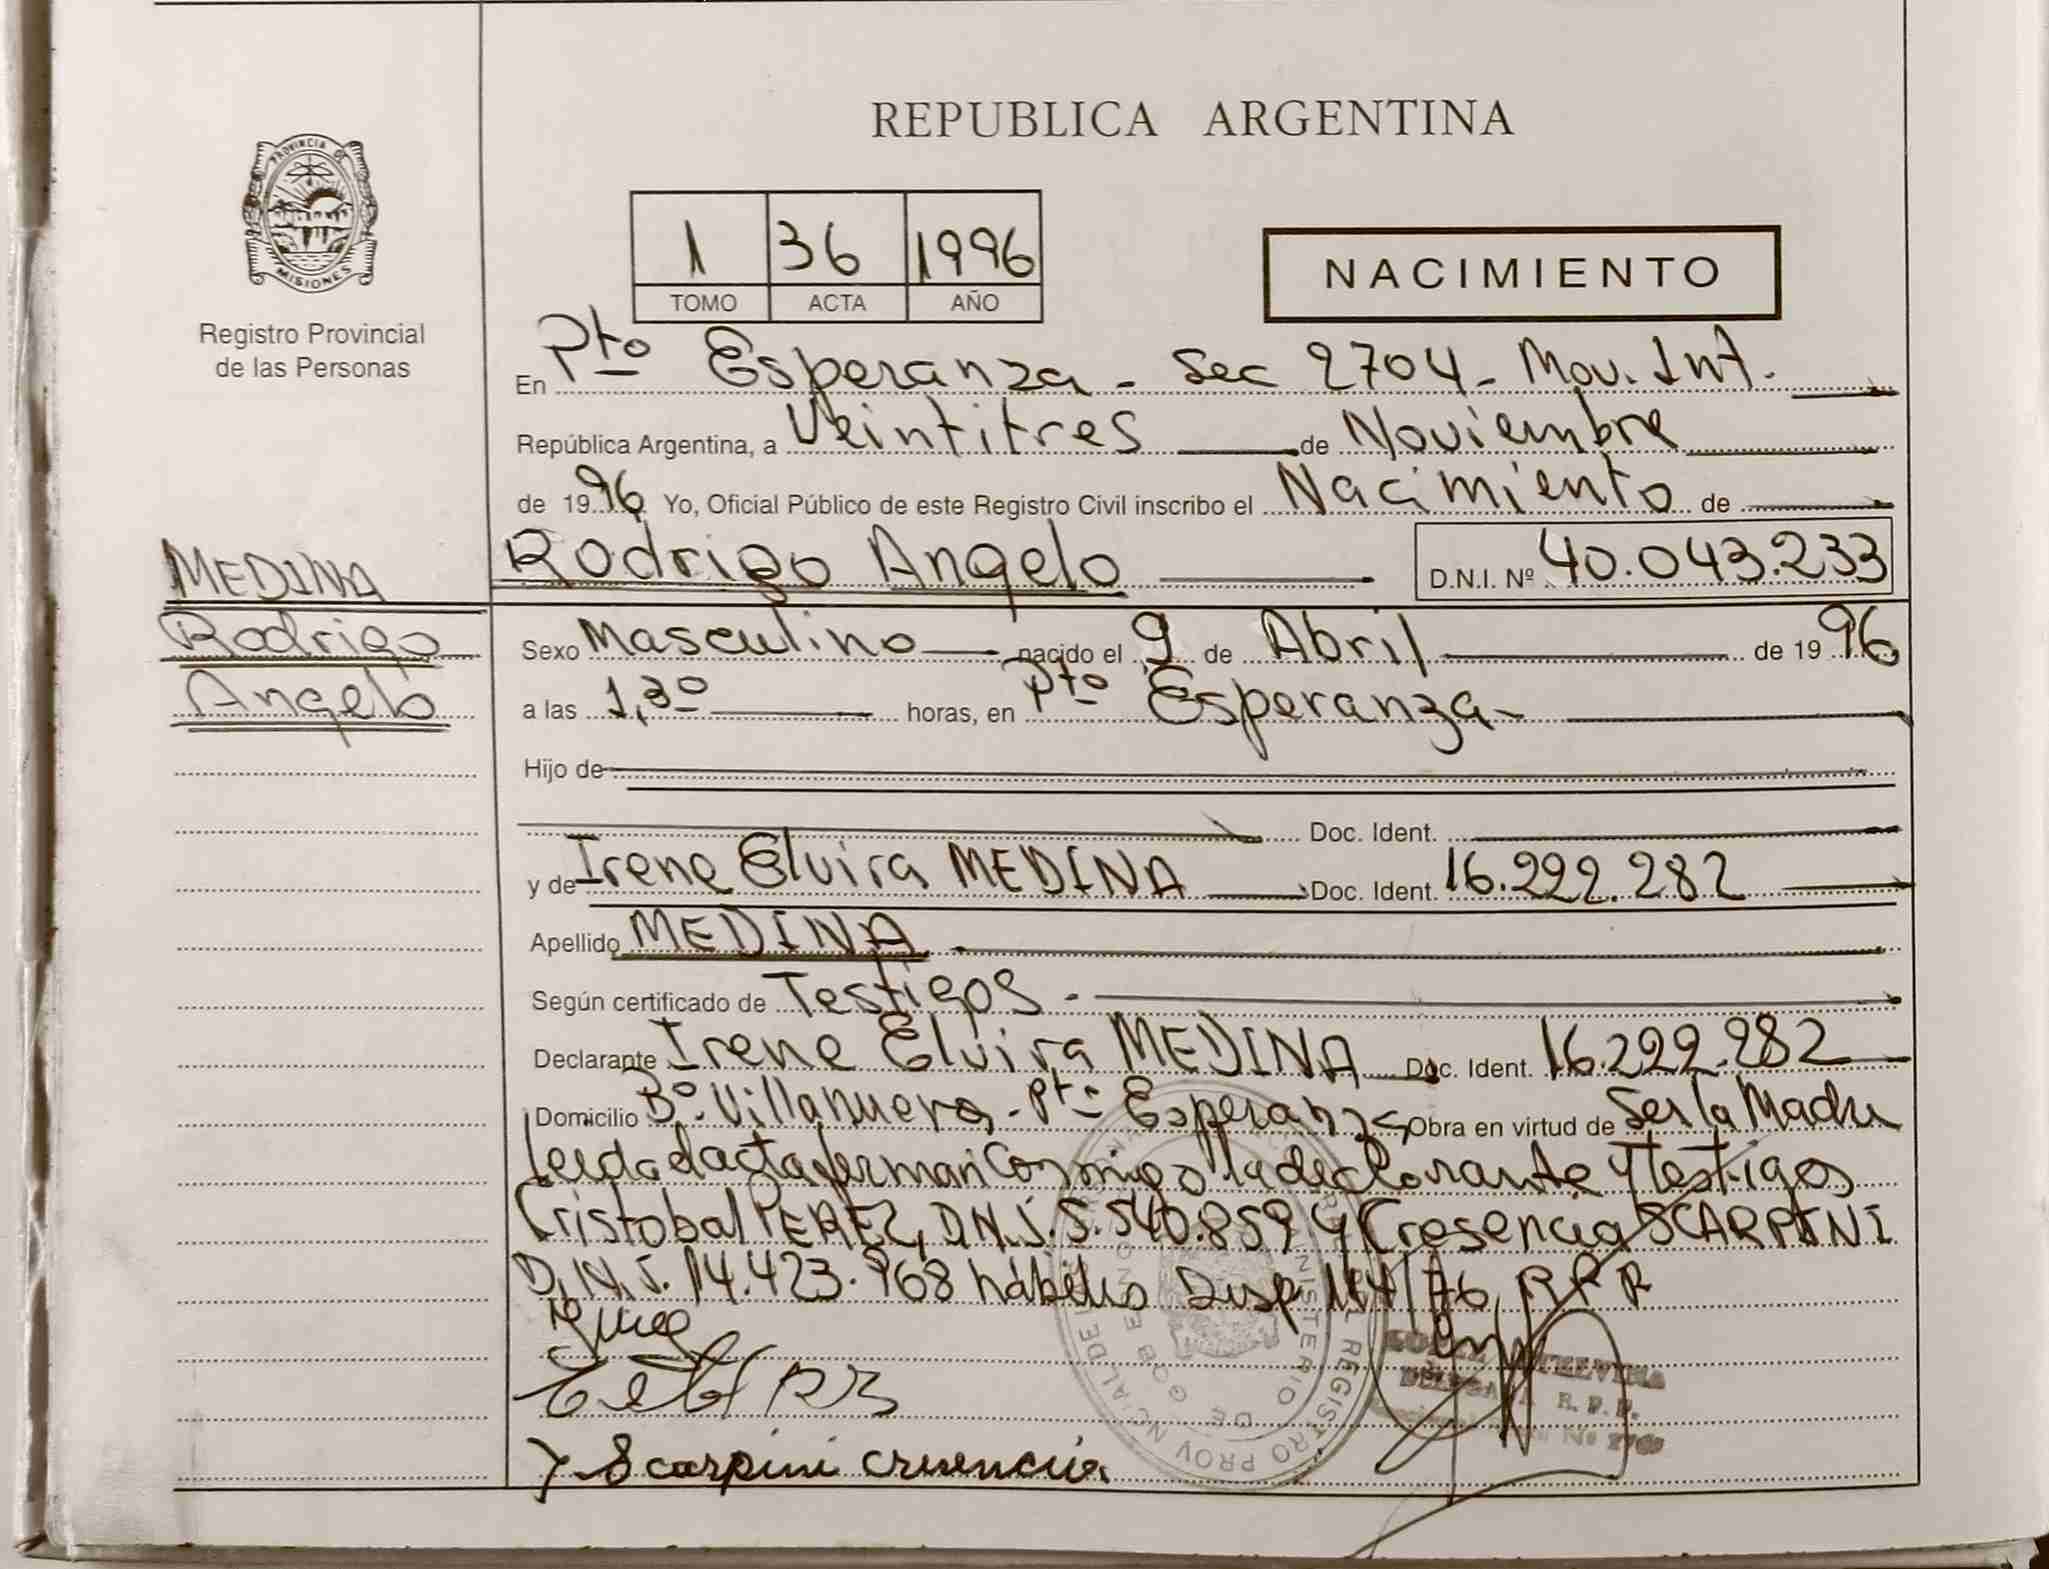 REPUBLICA ARGENTINA
PROVINCIA DE
MISIONES
Registro Provincial
de las Personas
1 36 1996
TOMO ACTA AÑO
NACIMIENTO
En Pto Esperanza - Sec 2704 - Mov. Int.
República Argentina, a Veintitres de Noviembre
de 1996 Yo, Oficial Público de este Registro Civil inscribo el Nacimiento de
Rodrigo Angelo D.N.I. Nº 40.043.233
MEDINA
Rodrigo
Angelo
Sexo Masculino nacido el 9 de Abril de 1996
a las 1,30 horas, en Pto Esperanza -
Hijo de
Doc. Ident.
y de Irene Elvira MEDINA Doc. Ident. 16.222.282
Apellido MEDINA
Según certificado de Testigos -
Declarante Irene Elvira MEDINA Doc. Ident. 16.222.282
Domicilio Bº Villanueva - Pto Esperanza Obra en virtud de Ser la Madre
leida el acta firman Conmigo la declarante y testigos
Cristobal PEREZ, D.N.I. 5.540.859 y Cresencia SCARPINI
D.N.I. 14.423.968 hábiles Disp 114/76 RPP
REGISTRO PROVINCIAL DE
MINISTERIO DE GOBIERNO
DELEGADA R.P.P.
Scarpini cresencia